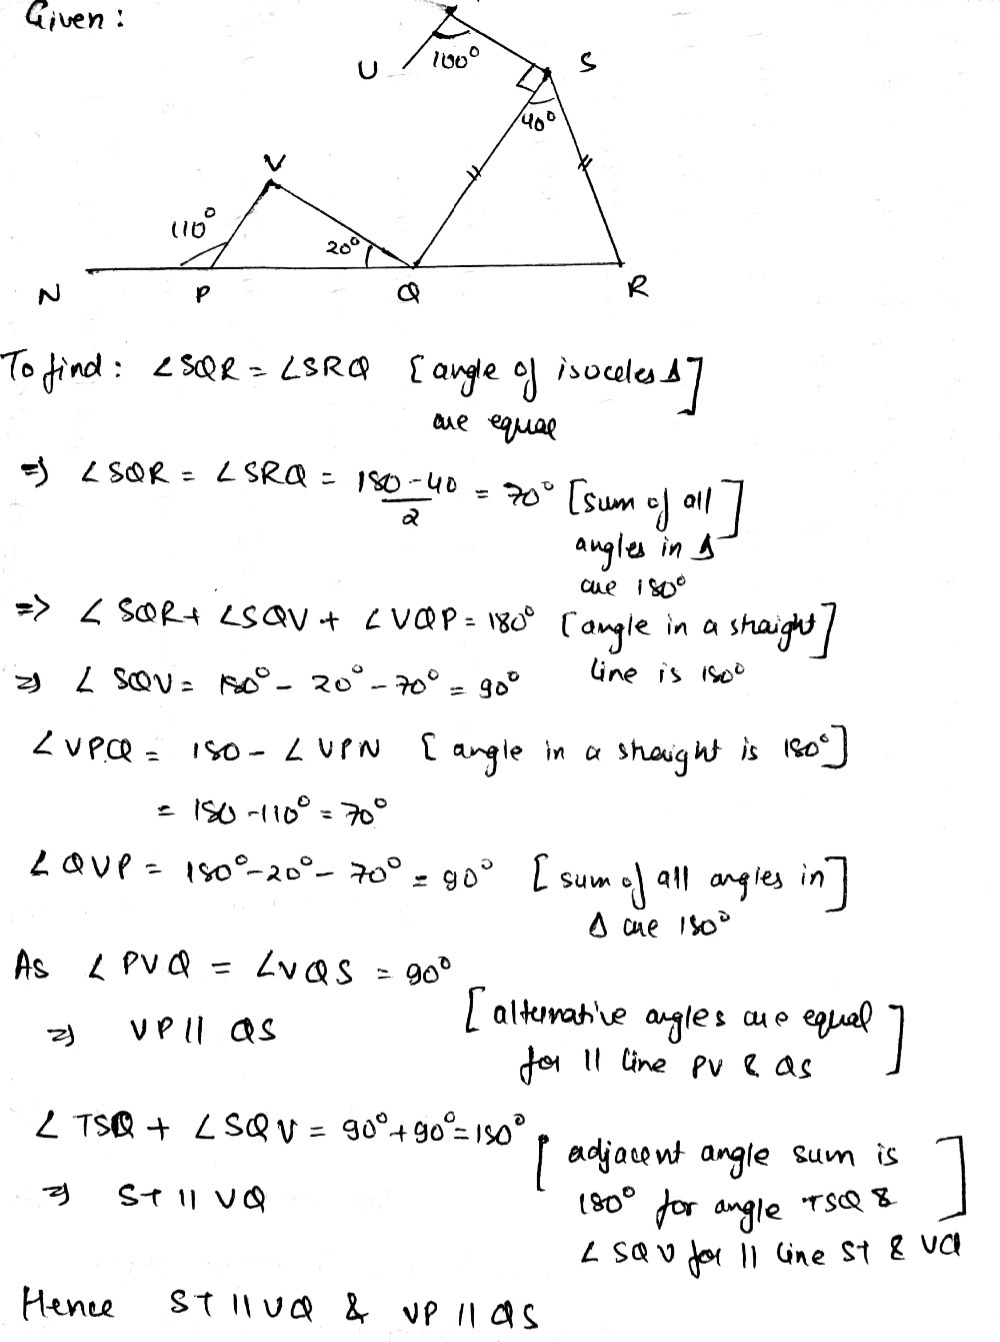 Given :
U 100° S
40°
V
110°
20°
N P Q R
To find : ∠SQR = ∠SRQ [angle of isoceles Δ]
are equal
⇒ ∠SQR = ∠SRQ = 180-40/2 = 70° [sum of all]
angles in Δ
are 180°
⇒ ∠SQR + ∠SQV + ∠VQP = 180° [angle in a straight]
line is 180°
⇒ ∠SQV = 180° - 20° - 70° = 90°
∠VPQ = 180 - ∠VPN [angle in a straight is 180°]
= 180 - 110° = 70°
∠QVP = 180° - 20° - 70° = 90° [sum of all angles in]
Δ are 180°
As ∠PVQ = ∠VQS = 90°
⇒ VP || QS [alternative angles are equal]
for || line PV & QS
∠TSQ + ∠SQV = 90° + 90° = 180°
[adjacent angle sum is]
⇒ ST || VQ 180° for angle TSQ &
∠SQV for || line ST & VQ
Hence ST || VQ & VP || QS